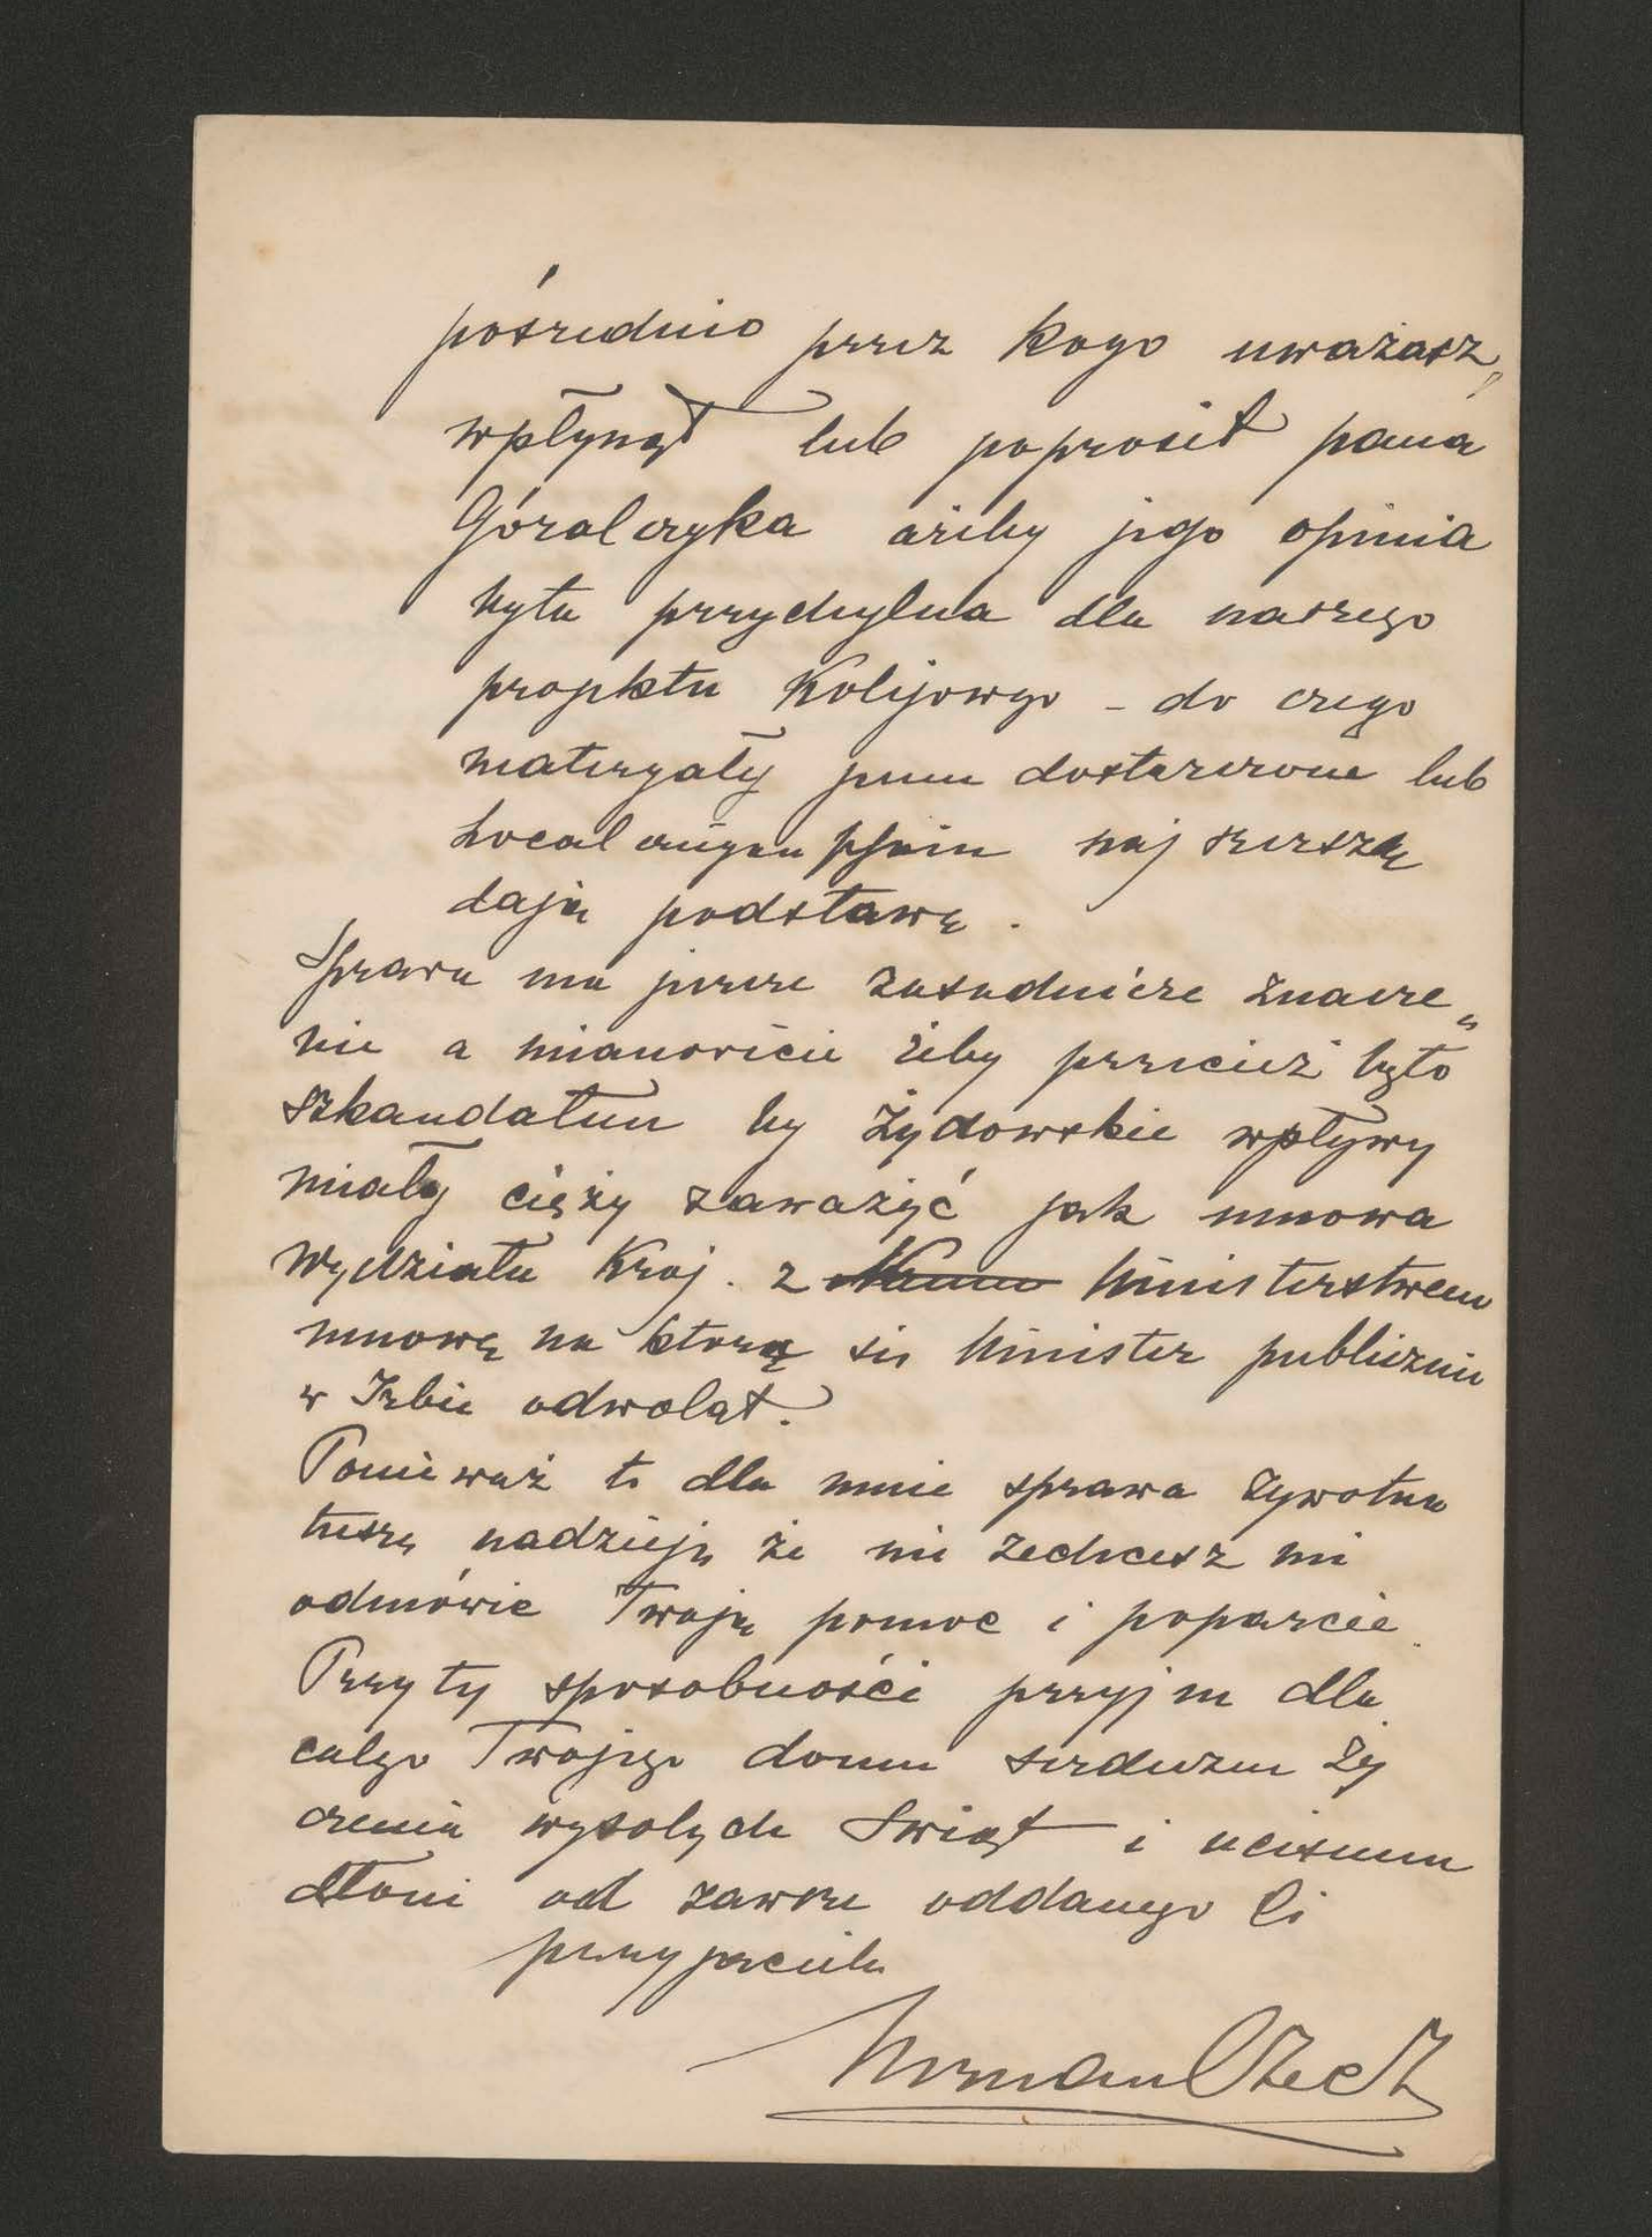 pośrednio przez kogo uważasz,
wpłynął lub poprosił pana
Góralczyka ażeby jego opinia
była przychylna dla naszego
projektu kolejowego – do czego
materyały jemu dostarczone lub
local najszerszą
dają podstawę.
Sprawa ma jeszcze zasadnicze znacze„
nie a mianowicie żeby przecież było
szkandałem by żydowskie wpływy
miały cięży zaważyć jak umowa
Wydziału Kraj. z Ministerstwem
umowę na którą się Minister publicznie
w Izbie odwołał.
Ponieważ to dla mnie sprawa żywotna
tuszę nadzieję że nie zechcesz mi
odmówić Twoją pomoc i poparcie.
Przy tej sposobności przyjm dla
całego Twojego domu serdeczne ży
czenia wesołych Świąt i uścisnien
dłoni od zawsze oddanego Ci
przyjaciela
Herman Czecz